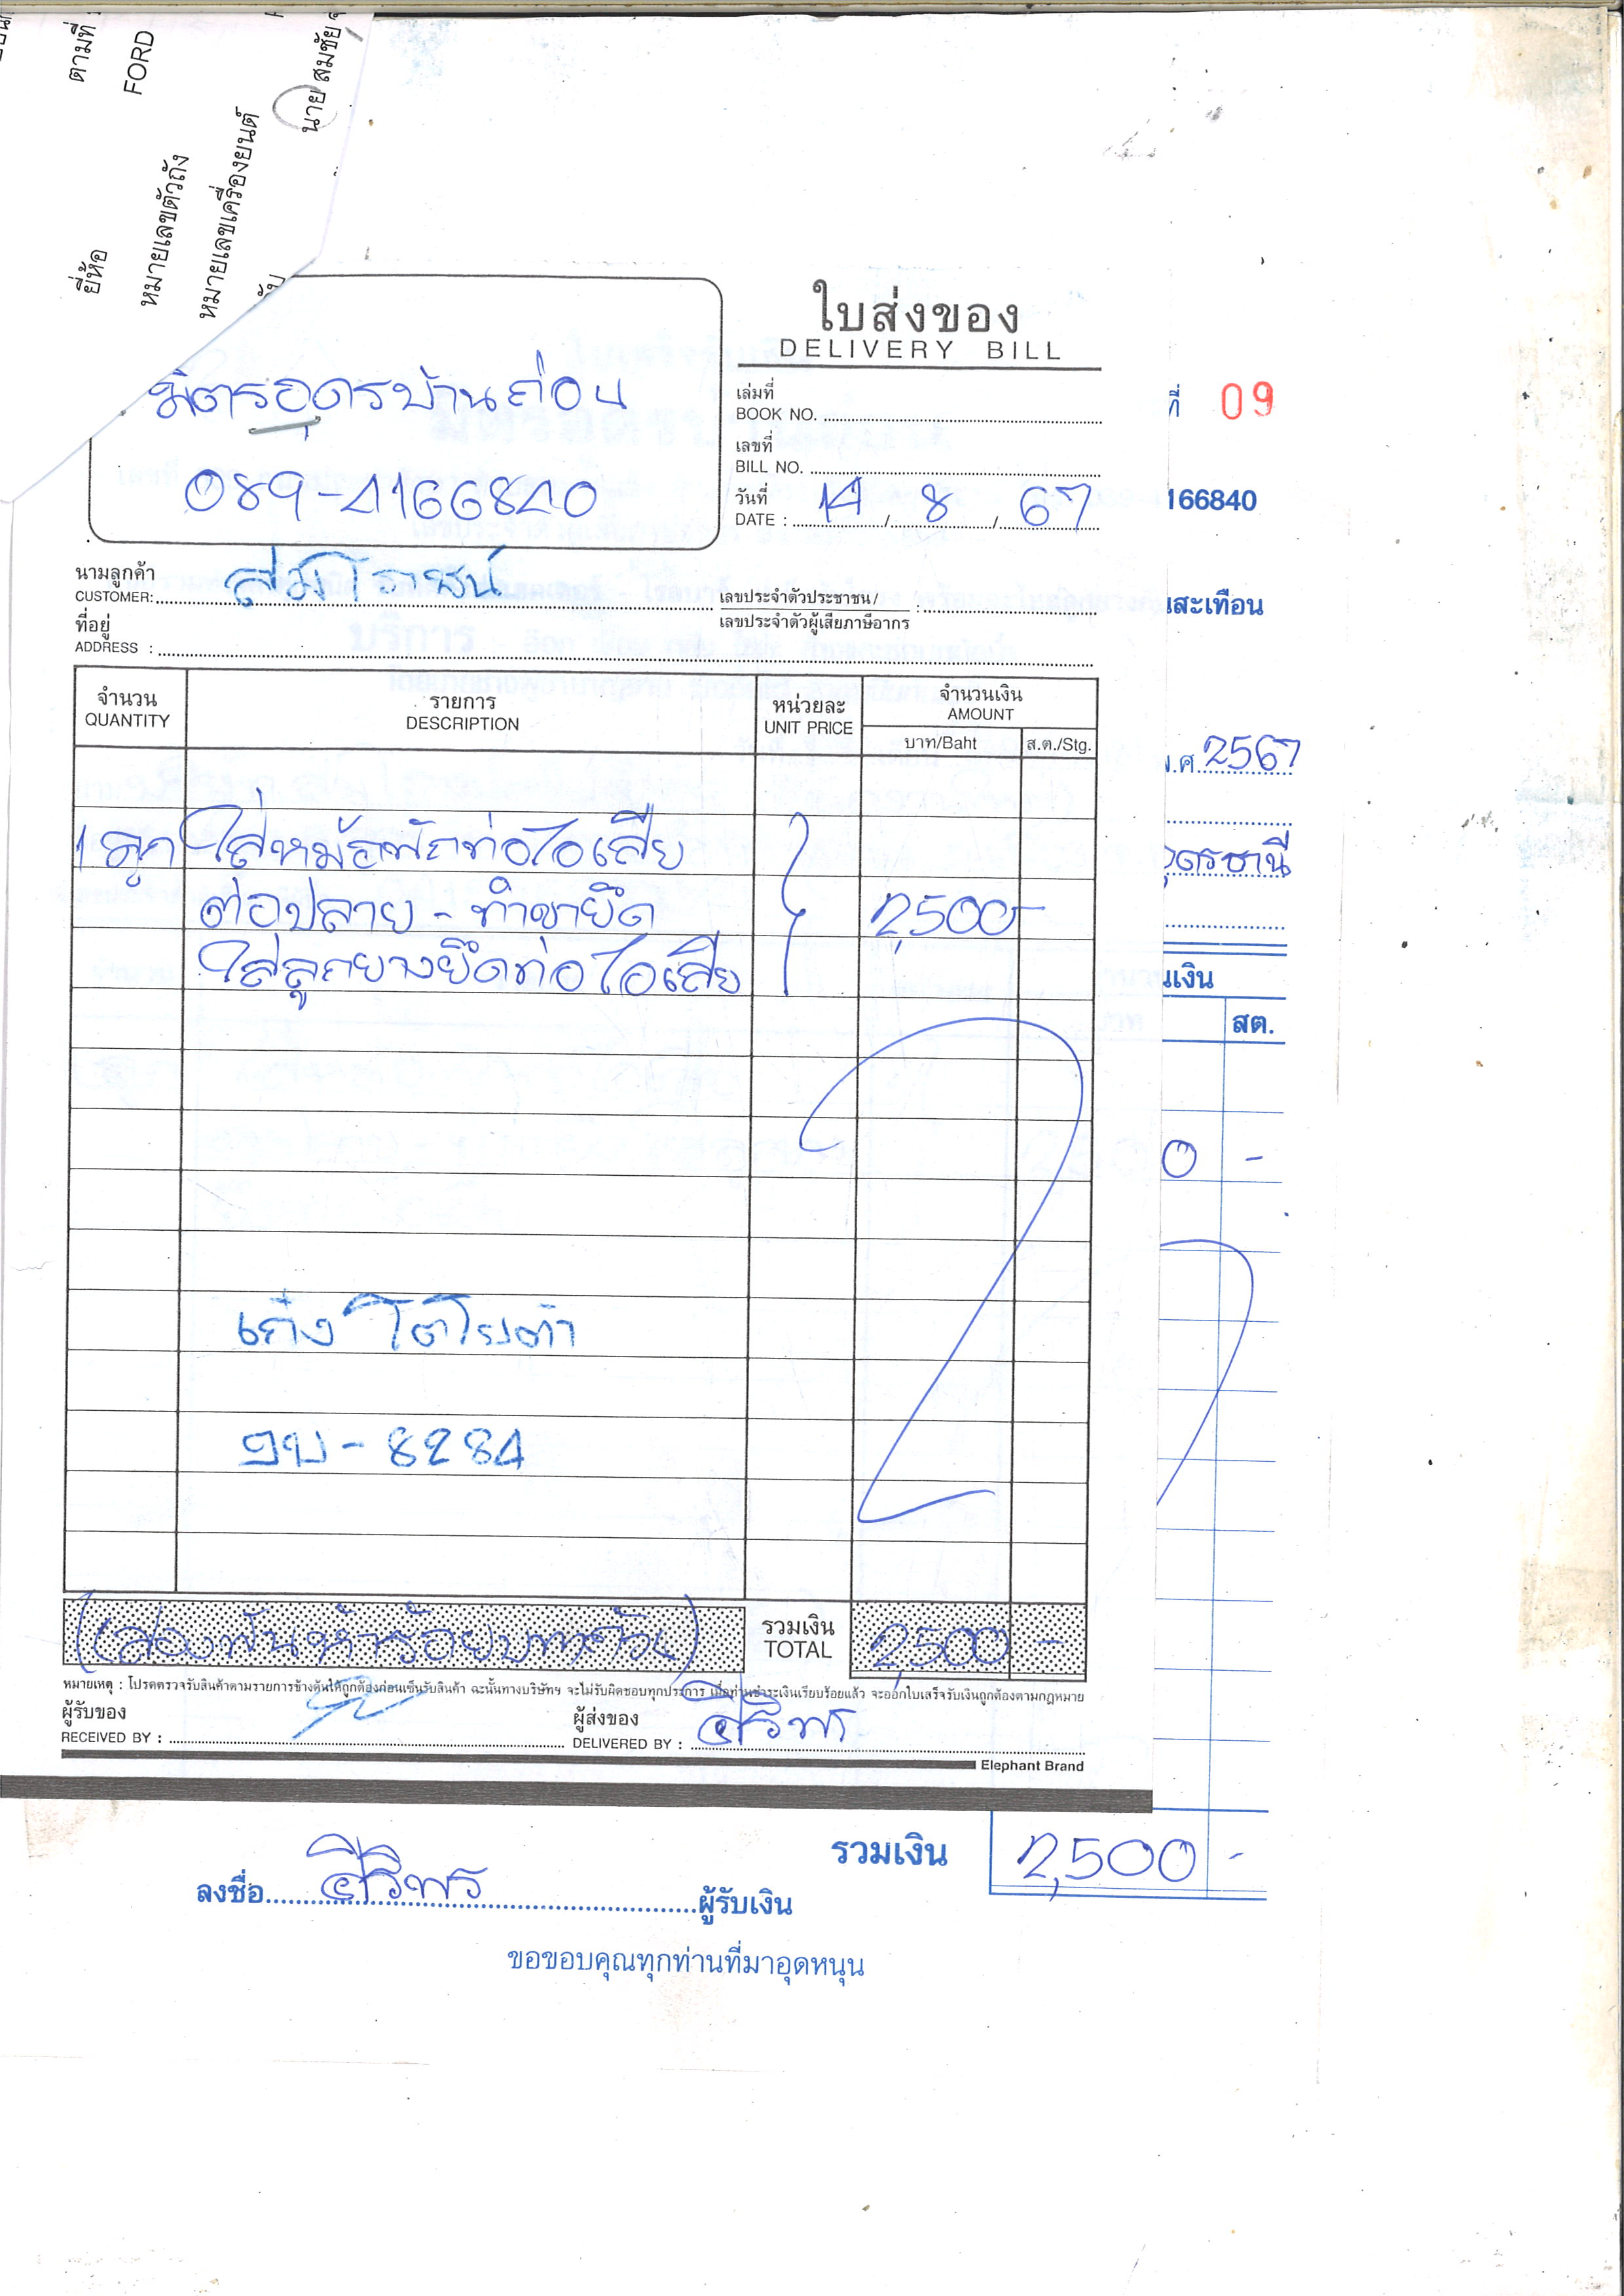 ตามที่
FORD
นาย สมชัย
ยี่ห้อ
หมายเลขตัวถัง
หมายเลขเครื่องยนต์
ใบส่งของ
DELIVERY BILL
มิตรอุดรบ้านถ่อน
089-4166840
เล่มที่
BOOK NO.
เลขที่
BILL NO.
วันที่
DATE : 14 / 8 / 67
ที่ 09
166840
นามลูกค้า
CUSTOMER:
เลขประจำตัวประชาชน /
เลขประจำตัวผู้เสียภาษีอากร :
นสะเทือน
ที่อยู่
ADDRESS :
จำนวน รายการ หน่วยละ จำนวนเงิน
QUANTITY DESCRIPTION UNIT PRICE AMOUNT
บาท/Baht ส.ต./Stg.
พ.ศ. 2567
1 ลูก ใส่หม้อพักท่อไอเสีย
ุดรธานี
ต่อปลาย - ทำขายึด 2,500-
ใส่ลูกยางยึดท่อไอเสีย
นเงิน
สต.
0 -
เก๋ง โตโยต้า
8284
(สองพันห้าร้อยบาทถ้วน) รวมเงิน 2,500 -
TOTAL
หมายเหตุ : โปรดตรวจรับสินค้าตามรายการข้างต้นให้ถูกต้องก่อนเซ็นรับสินค้า ฉะนั้นทางบริษัทฯ จะไม่รับผิดชอบทุกประการ เมื่อท่านชำระเงินเรียบร้อยแล้ว จะออกใบเสร็จรับเงินถูกต้องตามกฎหมาย
ผู้รับของ ผู้ส่งของ
RECEIVED BY : DELIVERED BY : ศิริพร
Elephant Brand
รวมเงิน 2,500 -
ลงชื่อ ศิริพร ผู้รับเงิน
ขอขอบคุณทุกท่านที่มาอุดหนุน